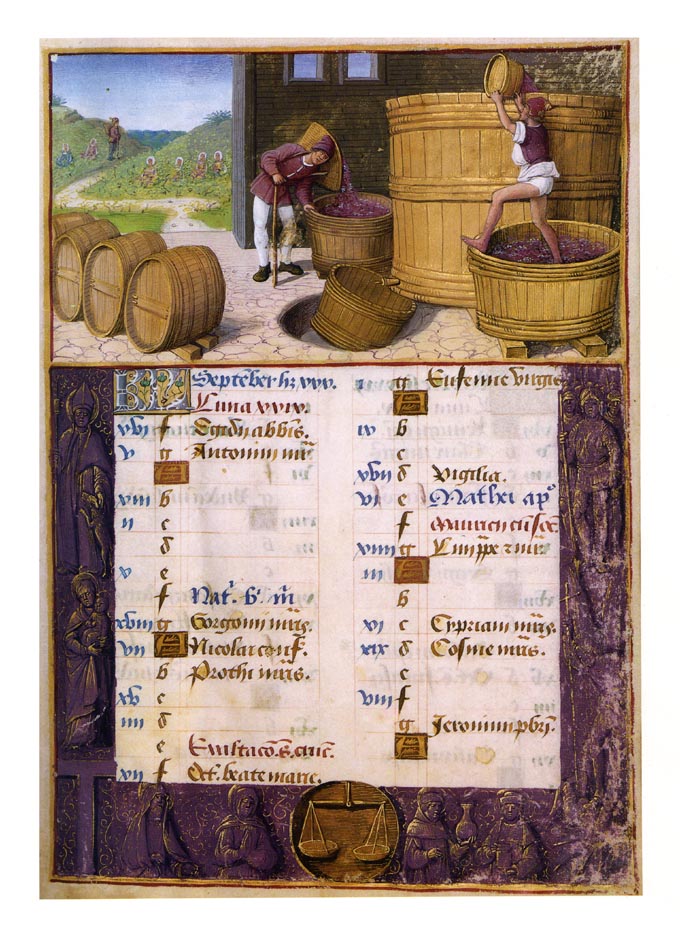 KL September hz xxx.
Luna xxix.
xvi f Egidii abbis.
v g Antonini mr̄
A
xiii b
ii c
d
v e
f Nat. b. m̄
xviii g Gorgonii mris.
vii A Nicolai conf.
b Prothi mris.
xv c
iiii d
e Exaltatio s. cruc.
xii f Oct. beate marie.
g Eufemie virgis
A
ix b
c
xvii d Vigilia.
vi e Mathei ap̄
f Mauricii cū soc.
xiiii g Lini ppe z mris
iii A
b
xi c Cypriani mris.
xix d Cosme mris.
e
viii f
g Jeronimi pbri.
A